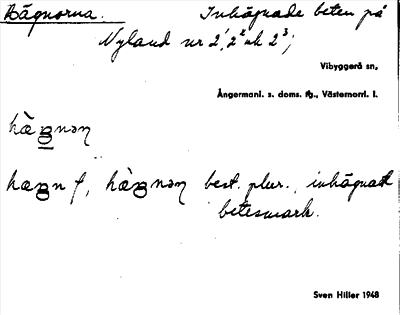 Hägnorna. Inhägnade beten på
Nyland nr 2¹, 2² och 2³;
Vibyggerå sn,
Ångermanl. s. doms. fg., Västernorrl. l.
best. plur., inhägnad
betesmark.
Sven Hiller 1948